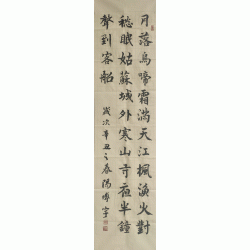 月落烏啼霜滿天江楓漁火對
愁眠姑蘇城外寒山寺夜半鐘
聲到客船
歲次辛丑之春